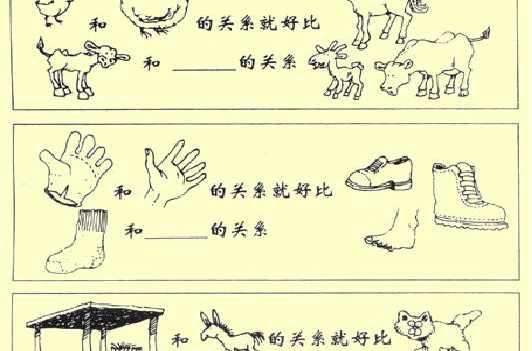 和 的关系就好比
和______的关系
和 的关系就好比
和______的关系
和 的关系就好比